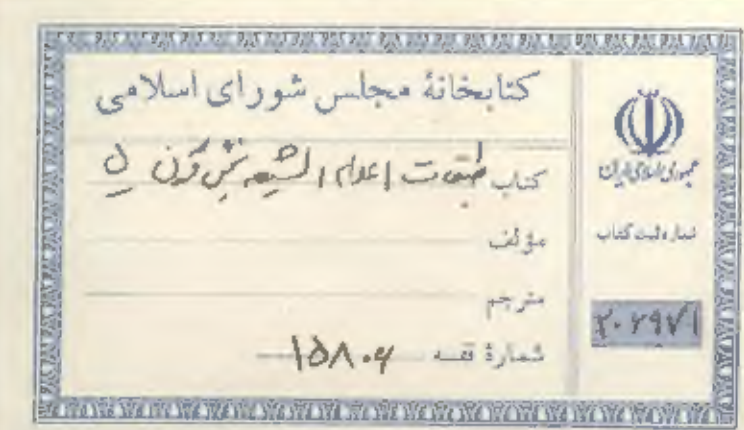 کتابخانهٔ مجلس شورای اسلامی
کتاب طبقات اعلام الشیعه
مؤلف
مترجم
شمارهٔ قفسه ۱۵۸۰۶
جمهوری اسلامی ایران
شماره ثبت کتاب
۲۰۲۹۷۱